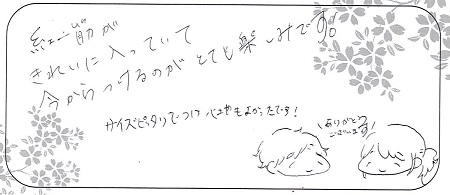 紅一筋が
きれいに入っていて
今からつけるのがとても楽しみです。
サイズピッタリでつけ心地もよかったです!
ありがとう
ございます!